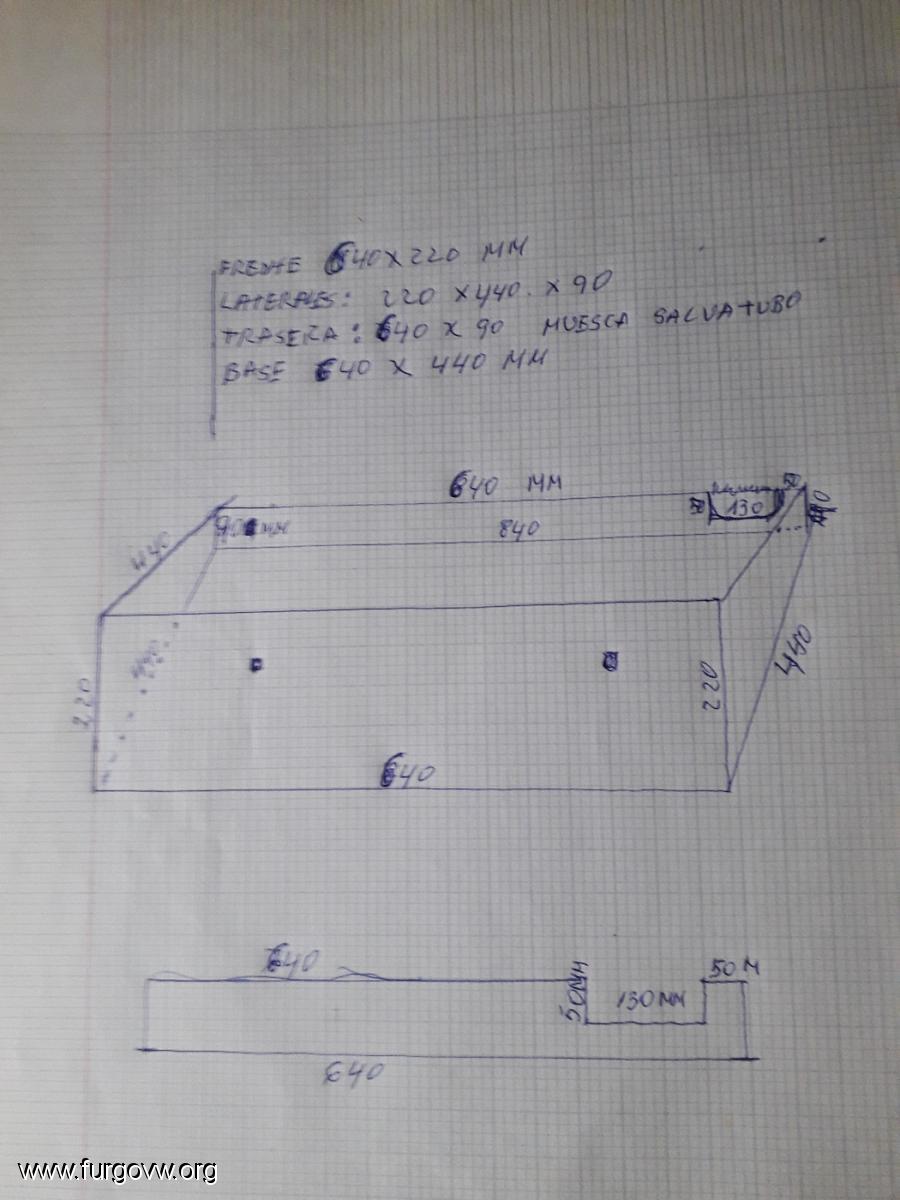 FRENTE 640 X 220 MM
LATERALES: 220 X 440. X 90
TRASERA: 640 X 90 MUESCA SALVATUBO
BASE 640 X 440 MM
640 MM
50
50
130
90
MM
840
440
440
220
220
440
640
640
50MM
130MM
50 M
640
www.furgovw.org